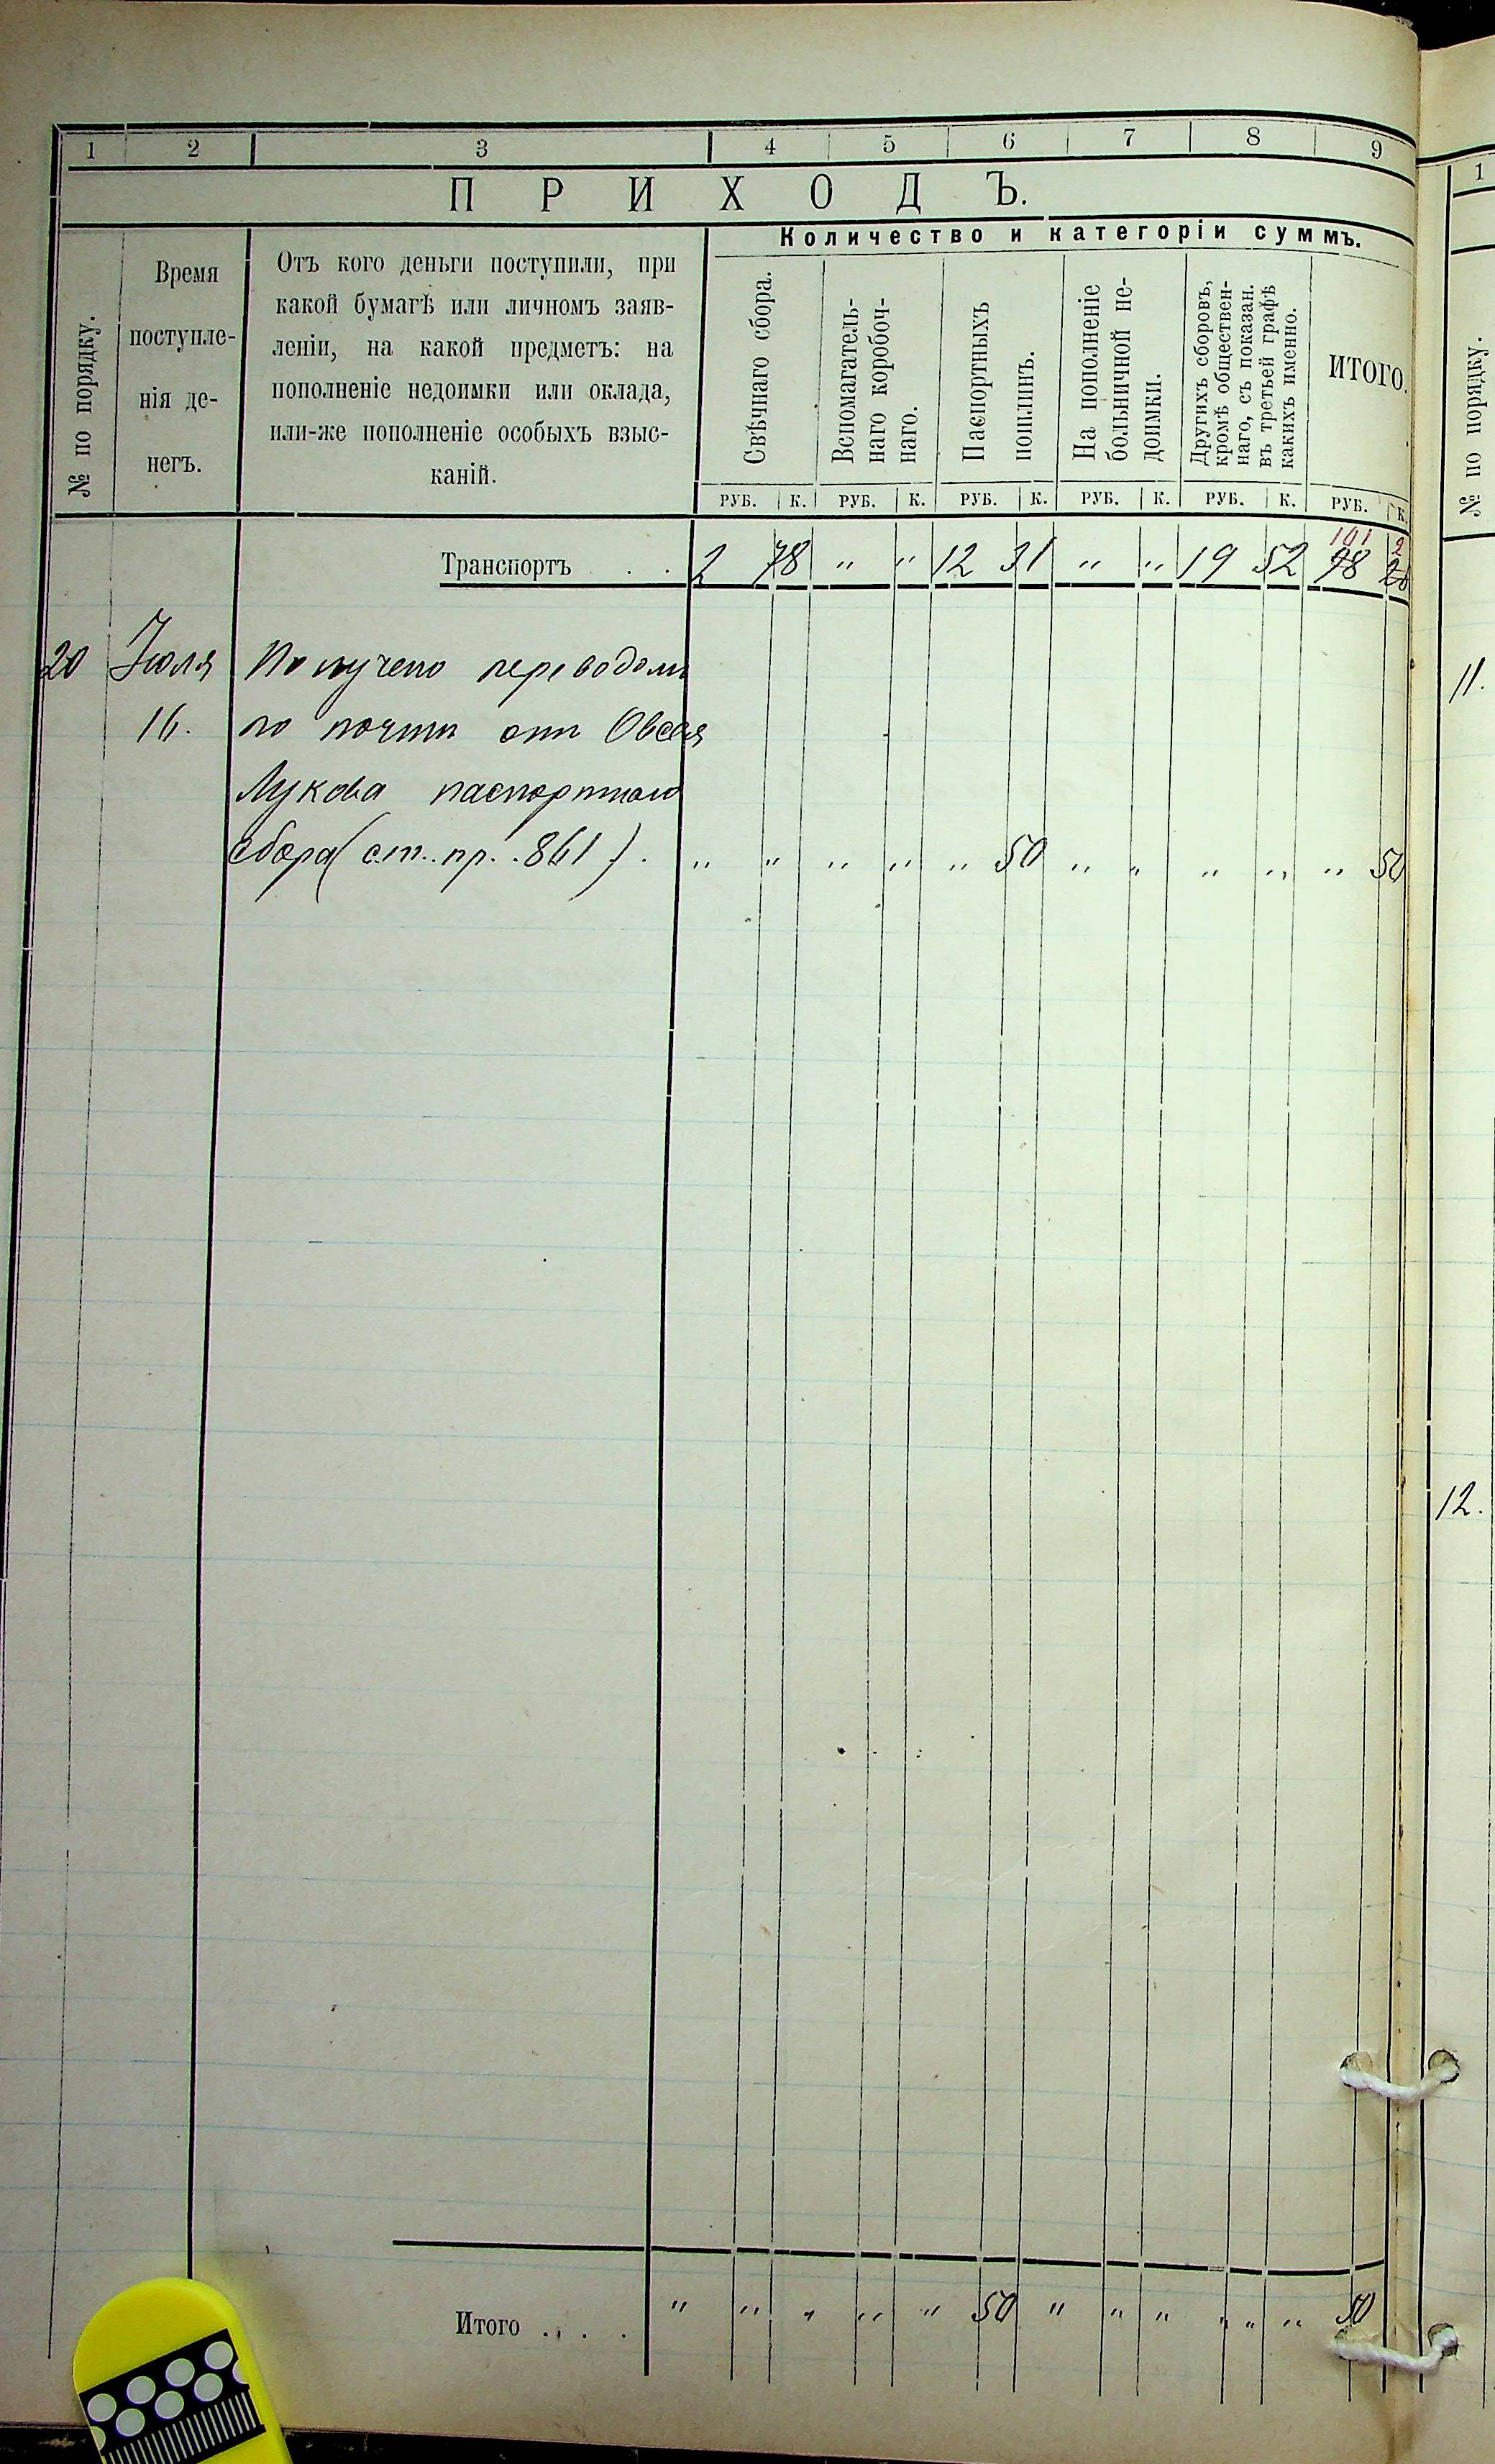 1 2 3 4 5 6 7 8 9
ПРИХОДЪ.
№ по порядку.
Время
поступле-
нія де-
негъ.
Отъ кого деньги поступили, при
какой бумагѣ или личномъ заяв-
леніи, на какой предметъ: на
пополненіе недоимки или оклада,
или-же пополненіе особыхъ взыс-
каній.
Количество и категоріи суммъ.
Свѣчнаго сбора.
Вспомагатель-
наго коробоч-
наго.
Паспортныхъ
пошлинъ.
На пополненіе
больничной не-
доимки.
Другихъ сборовъ,
кромѣ обществен-
наго, съ показан.
въ третьей графѣ
какихъ именно.
ИТОГО.
РУБ. К. РУБ. К. РУБ. К. РУБ. К. РУБ. К. РУБ. К.
101 2
Транспортъ . . 2 78 " " 12 31 " " 19 52 98
20 Іюля Получено переводомъ
16. по почтѣ отъ Овсея
Лукова паспортнаго
сбора (ст. пр. 861). " " " " " 50 " " " " " 50
Итого . . . . " " " " " 50 " " " " " " 50
1
№ по порядку.
11.
12.